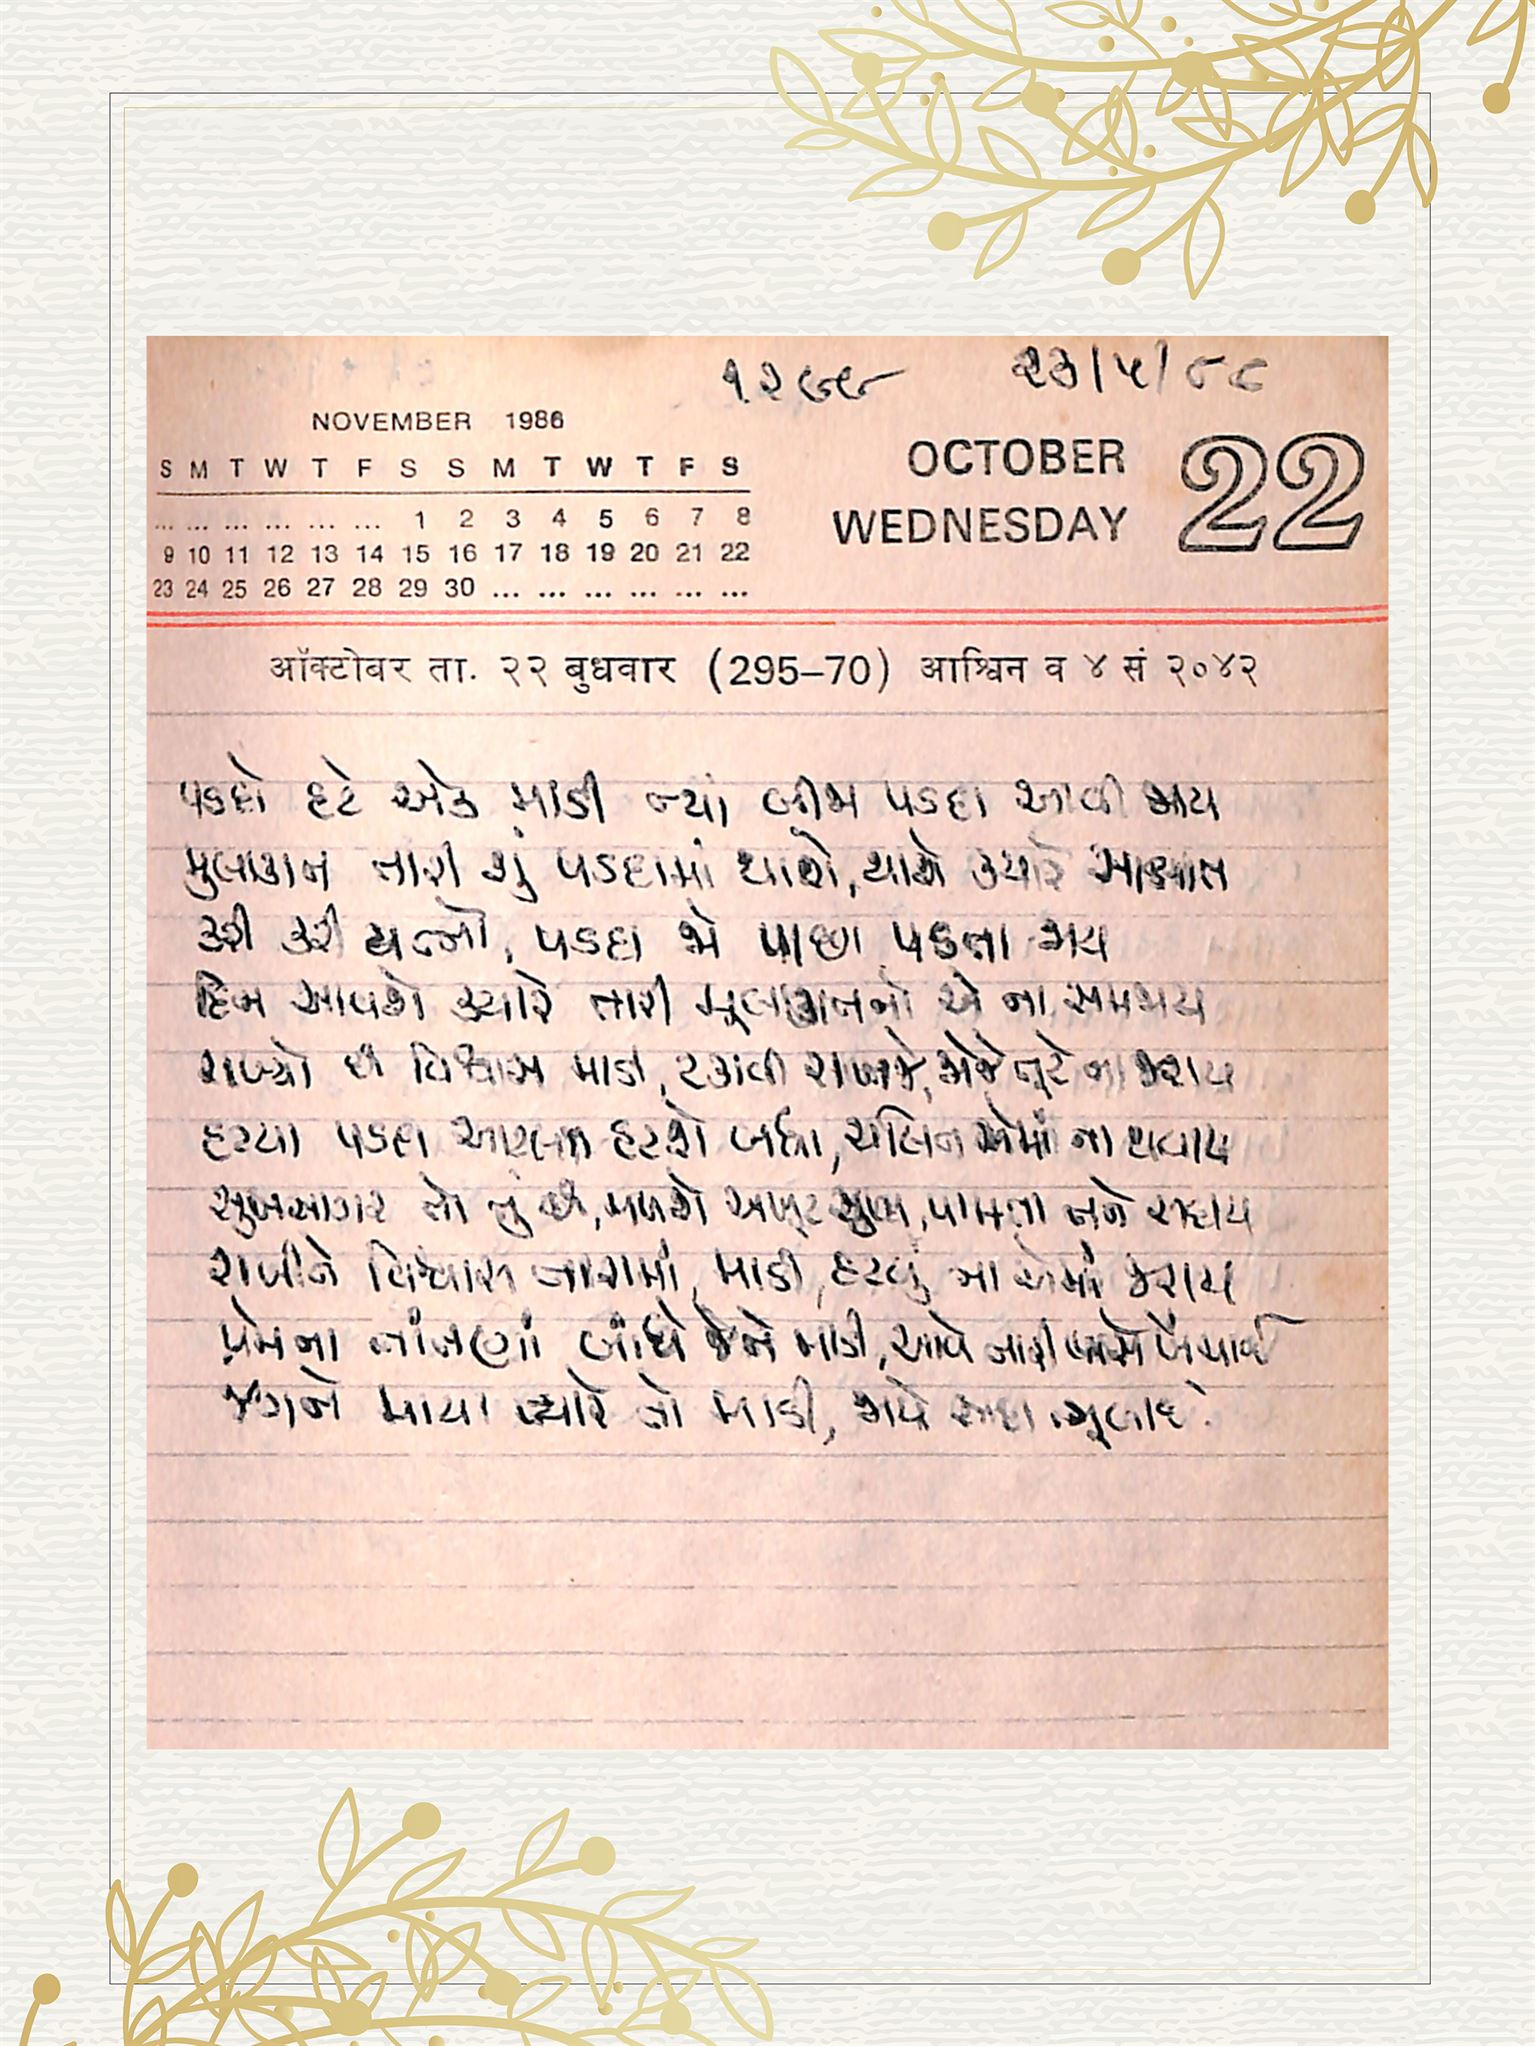 ૧૨૯૯ ૨૩/૫/૮૮
NOVEMBER 1986
OCTOBER 22
WEDNESDAY
S M T W T F S S M T W T F S
... ... ... ... ... ... 1 2 3 4 5 6 7 8
9 10 11 12 13 14 15 16 17 18 19 20 21 22
23 24 25 26 27 28 29 30 ... ... ... ... ... ...
ऑक्टोबर ता. २२ बुधवार (295–70) आश्विन व ४ सं २०४२
પડદો હટે એક માડી જ્યાં બીજા પડદા આવી જાય
મુલાકાત તારી શું પડદામાં થાશે, થાશે ક્યારે સાક્ષાત
કરી કરી યત્નો, પડદા જો પાછા પડતા જાય
દિન આવશે ક્યારે તારી મૂલાકાતનો એ ના સમજાય
રાખ્યો છે વિશ્વાસ માડી, ટકાવી રાખજે, જોજે તૂટે ના જરાય
હટયા પડદા આટલા હટશે બધા, ચલિત એમાં ના થવાય
સુખસાગર તો તું છે, મળશે અખૂટ સુખ, પામતા તને સદાય
રાખીને વિશ્વાસ તારામાં, માડી, હટવું ના એમાં જરાય
પ્રેમના તાંતણાં બાંધે જેને માડી, આવે તારી પાસે ખેંચાઈ
જગને માયા ત્યારે તો માડી, જાયે સદા ભૂલાઈ.